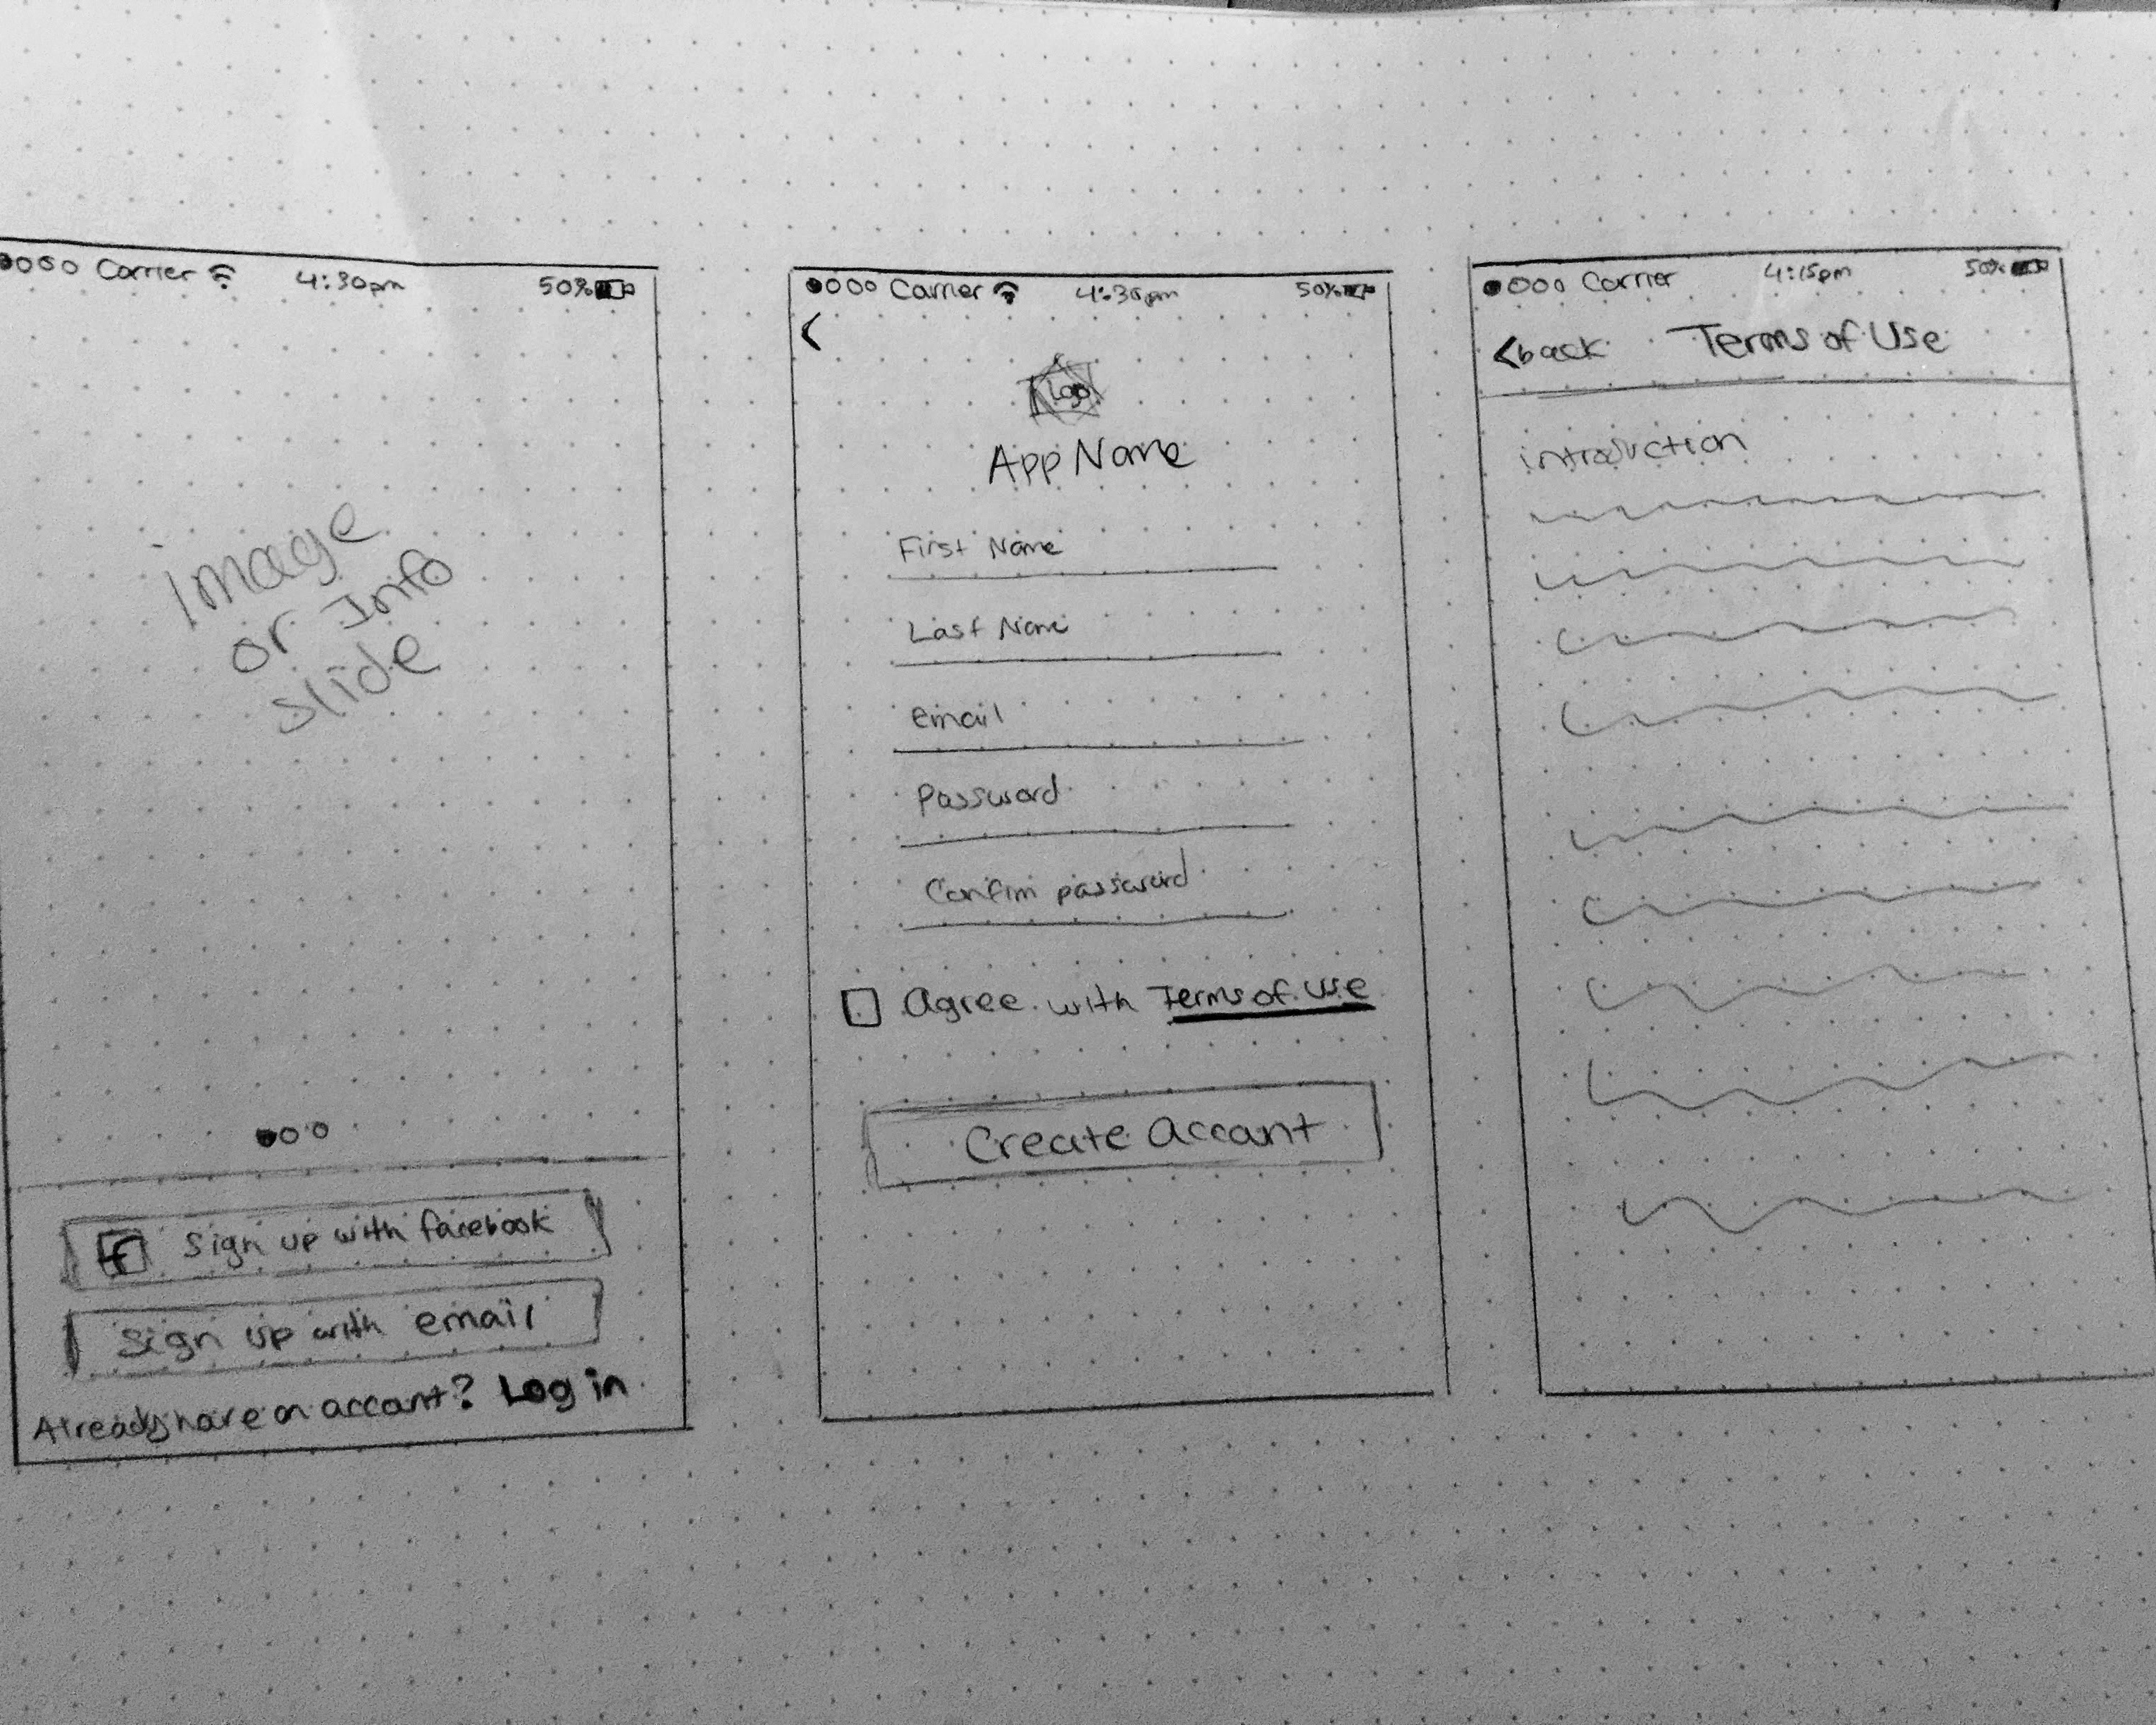 Carrier 4:30pm 50%
image
or Info
slide
f Sign up with facebook
Sign up with email
Already have an account? Log in
Carrier 4:30pm 50%
<
Logo
App Name
First Name
Last Name
email
Password
Confirm password
Agree with Terms of Use
Create Account
Carrier 4:15pm 50%
<back Terms of Use
introduction